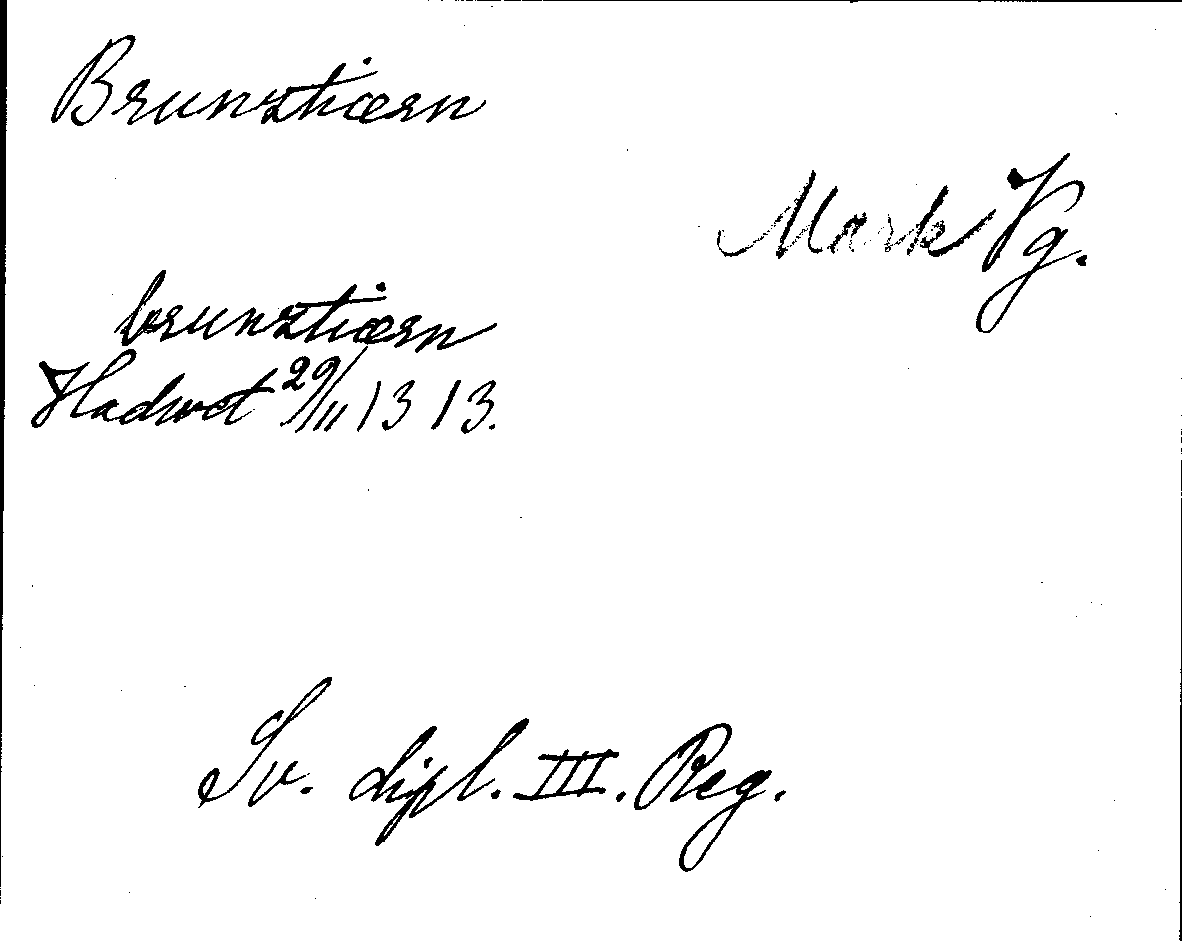 Brunztiærn
Mark Vg.
brunztiærn
Hadwet 29/11 1313.
Sv. dipl. III. Reg.